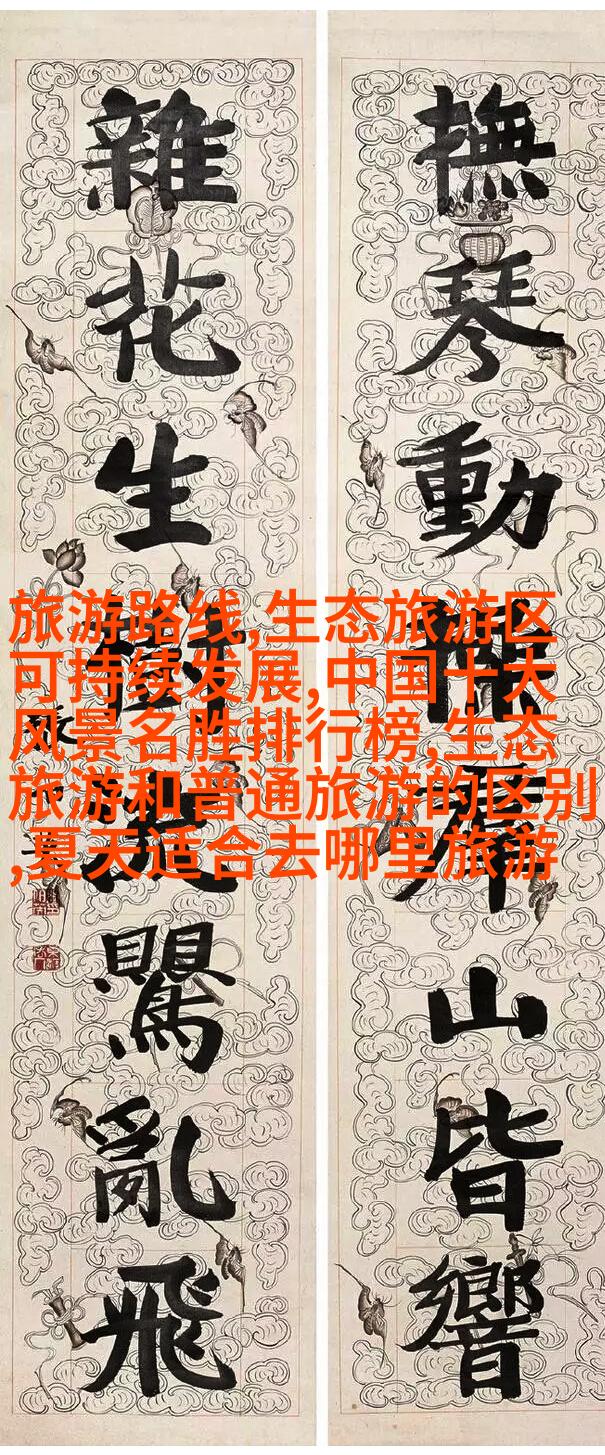 撫琴動操羣山皆響
雜花生樹鸎亂飛
旅游路线,生态旅游区
可持续发展,中国十大
风景名胜排行榜,生态
旅游和普通旅游的区别
,夏天适合去哪里旅游